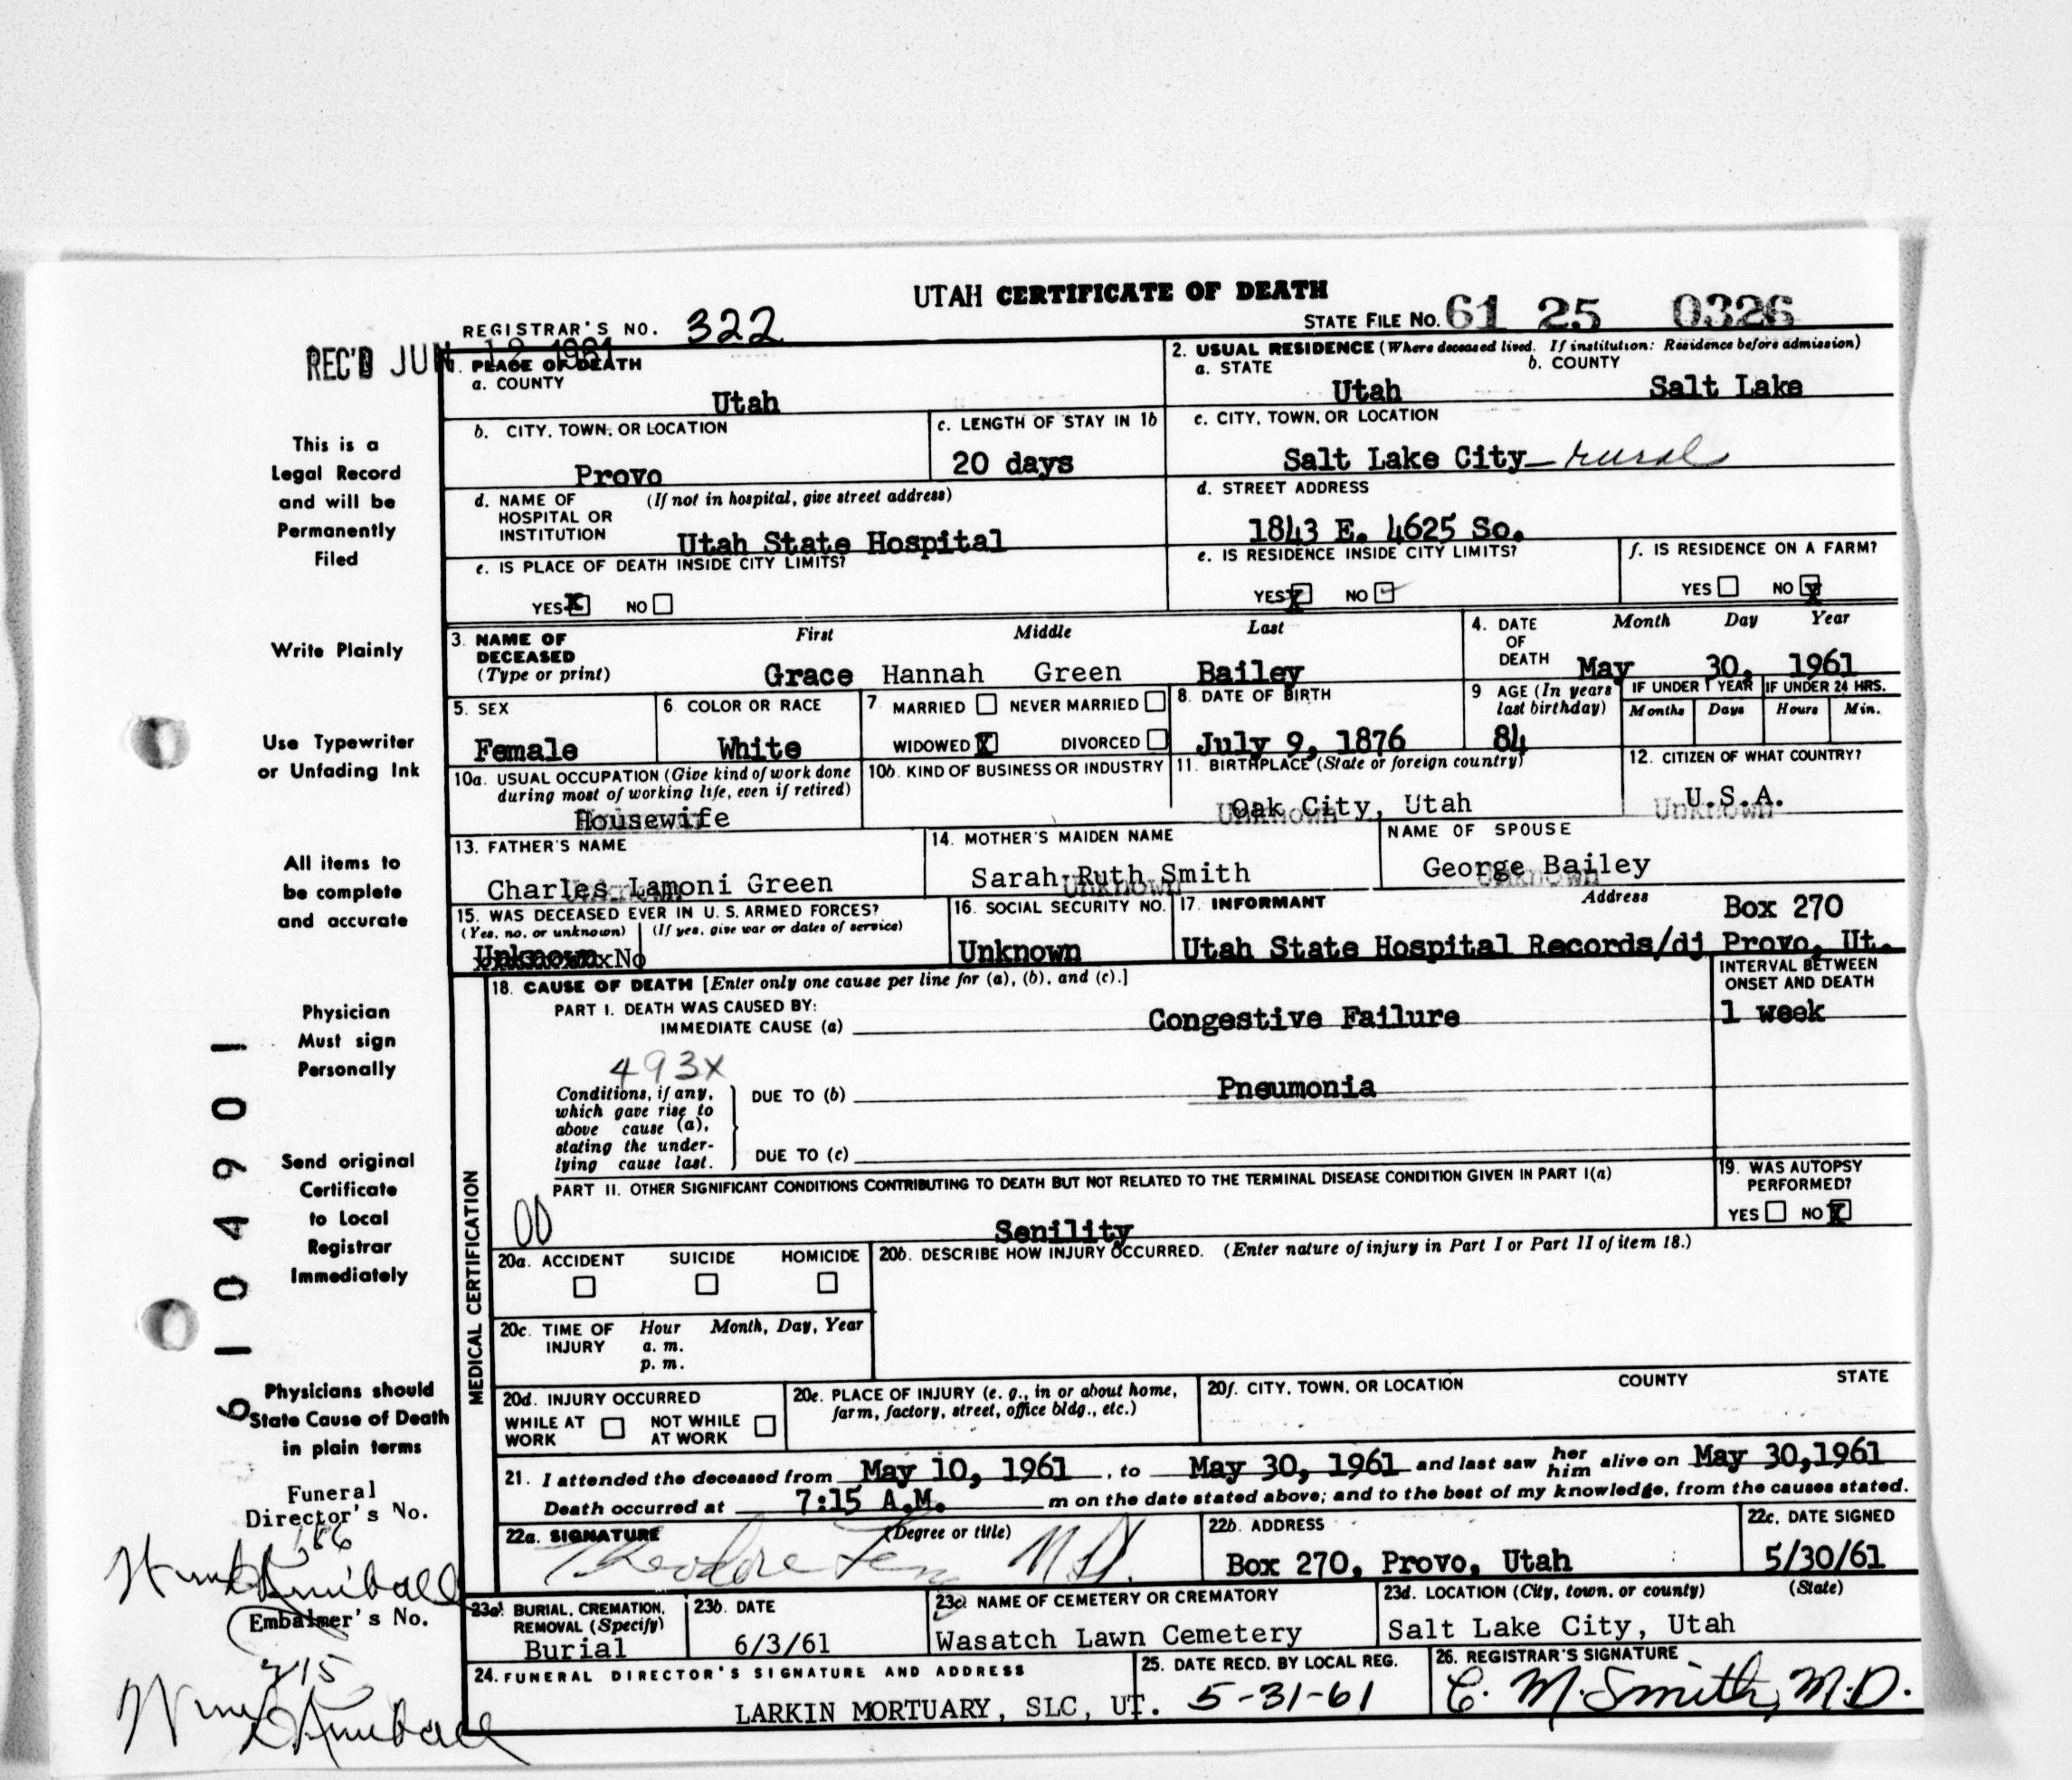 UTAH CERTIFICATE OF DEATH
REGISTRAR'S NO. 322
STATE FILE NO. 61 25 0326
REC'D JUN 12 1961
1. PLACE OF DEATH
a. COUNTY
Utah
2. USUAL RESIDENCE (Where deceased lived. If institution: Residence before admission)
a. STATE
Utah
b. COUNTY
Salt Lake
b. CITY, TOWN, OR LOCATION
Provo
c. LENGTH OF STAY IN 1b
20 days
c. CITY, TOWN, OR LOCATION
Salt Lake City rural
d. NAME OF HOSPITAL OR INSTITUTION (If not in hospital, give street address)
Utah State Hospital
d. STREET ADDRESS
1843 E. 4625 So.
e. IS PLACE OF DEATH INSIDE CITY LIMITS?
YES X NO
e. IS RESIDENCE INSIDE CITY LIMITS?
YES X NO
f. IS RESIDENCE ON A FARM?
YES NO X
3. NAME OF DECEASED (Type or print)
First Middle Last
Grace Hannah Green Bailey
4. DATE OF DEATH
Month Day Year
May 30, 1961
5. SEX
Female
6. COLOR OR RACE
White
7. MARRIED NEVER MARRIED
WIDOWED X DIVORCED
8. DATE OF BIRTH
July 9, 1876
9 AGE (In years last birthday)
84
IF UNDER 1 YEAR
Months Days
IF UNDER 24 HRS.
Hours Min.
10a. USUAL OCCUPATION (Give kind of work done during most of working life, even if retired)
Housewife
10b. KIND OF BUSINESS OR INDUSTRY
11. BIRTHPLACE (State or foreign country)
Unknown
Oak City, Utah
12. CITIZEN OF WHAT COUNTRY?
U.S.A.
Unknown
13. FATHER'S NAME
Charles Lamoni Green
Unknown
14. MOTHER'S MAIDEN NAME
Sarah Ruth Smith
Unknown
NAME OF SPOUSE
George Bailey
Unknown
15. WAS DECEASED EVER IN U. S. ARMED FORCES?
(Yes, no, or unknown) (If yes, give war or dates of service)
Unknown No
16. SOCIAL SECURITY NO.
Unknown
17. INFORMANT
Address
Box 270
Utah State Hospital Records/dj Provo, Ut.
MEDICAL CERTIFICATION
18. CAUSE OF DEATH [Enter only one cause per line for (a), (b), and (c).]
INTERVAL BETWEEN ONSET AND DEATH
PART I. DEATH WAS CAUSED BY:
IMMEDIATE CAUSE (a) Congestive Failure
1 week
493X
Conditions, if any, which gave rise to above cause (a), stating the underlying cause last.
DUE TO (b) Pneumonia
DUE TO (c)
PART II. OTHER SIGNIFICANT CONDITIONS CONTRIBUTING TO DEATH BUT NOT RELATED TO THE TERMINAL DISEASE CONDITION GIVEN IN PART I(a)
00
Senility
19. WAS AUTOPSY PERFORMED?
YES NO X
20a. ACCIDENT SUICIDE HOMICIDE
20b. DESCRIBE HOW INJURY OCCURRED. (Enter nature of injury in Part I or Part II of item 18.)
20c. TIME OF INJURY
Hour Month, Day, Year
a. m.
p. m.
20d. INJURY OCCURRED
WHILE AT WORK NOT WHILE AT WORK
20e. PLACE OF INJURY (e. g., in or about home, farm, factory, street, office bldg., etc.)
20f. CITY, TOWN, OR LOCATION COUNTY STATE
21. I attended the deceased from May 10, 1961, to May 30, 1961 and last saw her him alive on May 30,1961
Death occurred at 7:15 A.M. m on the date stated above; and to the best of my knowledge, from the causes stated.
22a. SIGNATURE (Degree or title)
Theodore M.D.
22b. ADDRESS
Box 270, Provo, Utah
22c. DATE SIGNED
5/30/61
23a. BURIAL, CREMATION, REMOVAL (Specify)
Burial
23b. DATE
6/3/61
23c. NAME OF CEMETERY OR CREMATORY
Wasatch Lawn Cemetery
23d. LOCATION (City, town, or county) (State)
Salt Lake City, Utah
24. FUNERAL DIRECTOR'S SIGNATURE AND ADDRESS
LARKIN MORTUARY, SLC, UT.
25. DATE RECD. BY LOCAL REG.
5-31-61
26. REGISTRAR'S SIGNATURE
C. M. Smith, M.D.
This is a
Legal Record
and will be
Permanently
Filed
Write Plainly
Use Typewriter
or Unfading Ink
All items to
be complete
and accurate
Physician
Must sign
Personally
Send original
Certificate
to Local
Registrar
Immediately
Physicians should
State Cause of Death
in plain terms
Funeral
Director's No.
Embalmer's No.
715
6104901